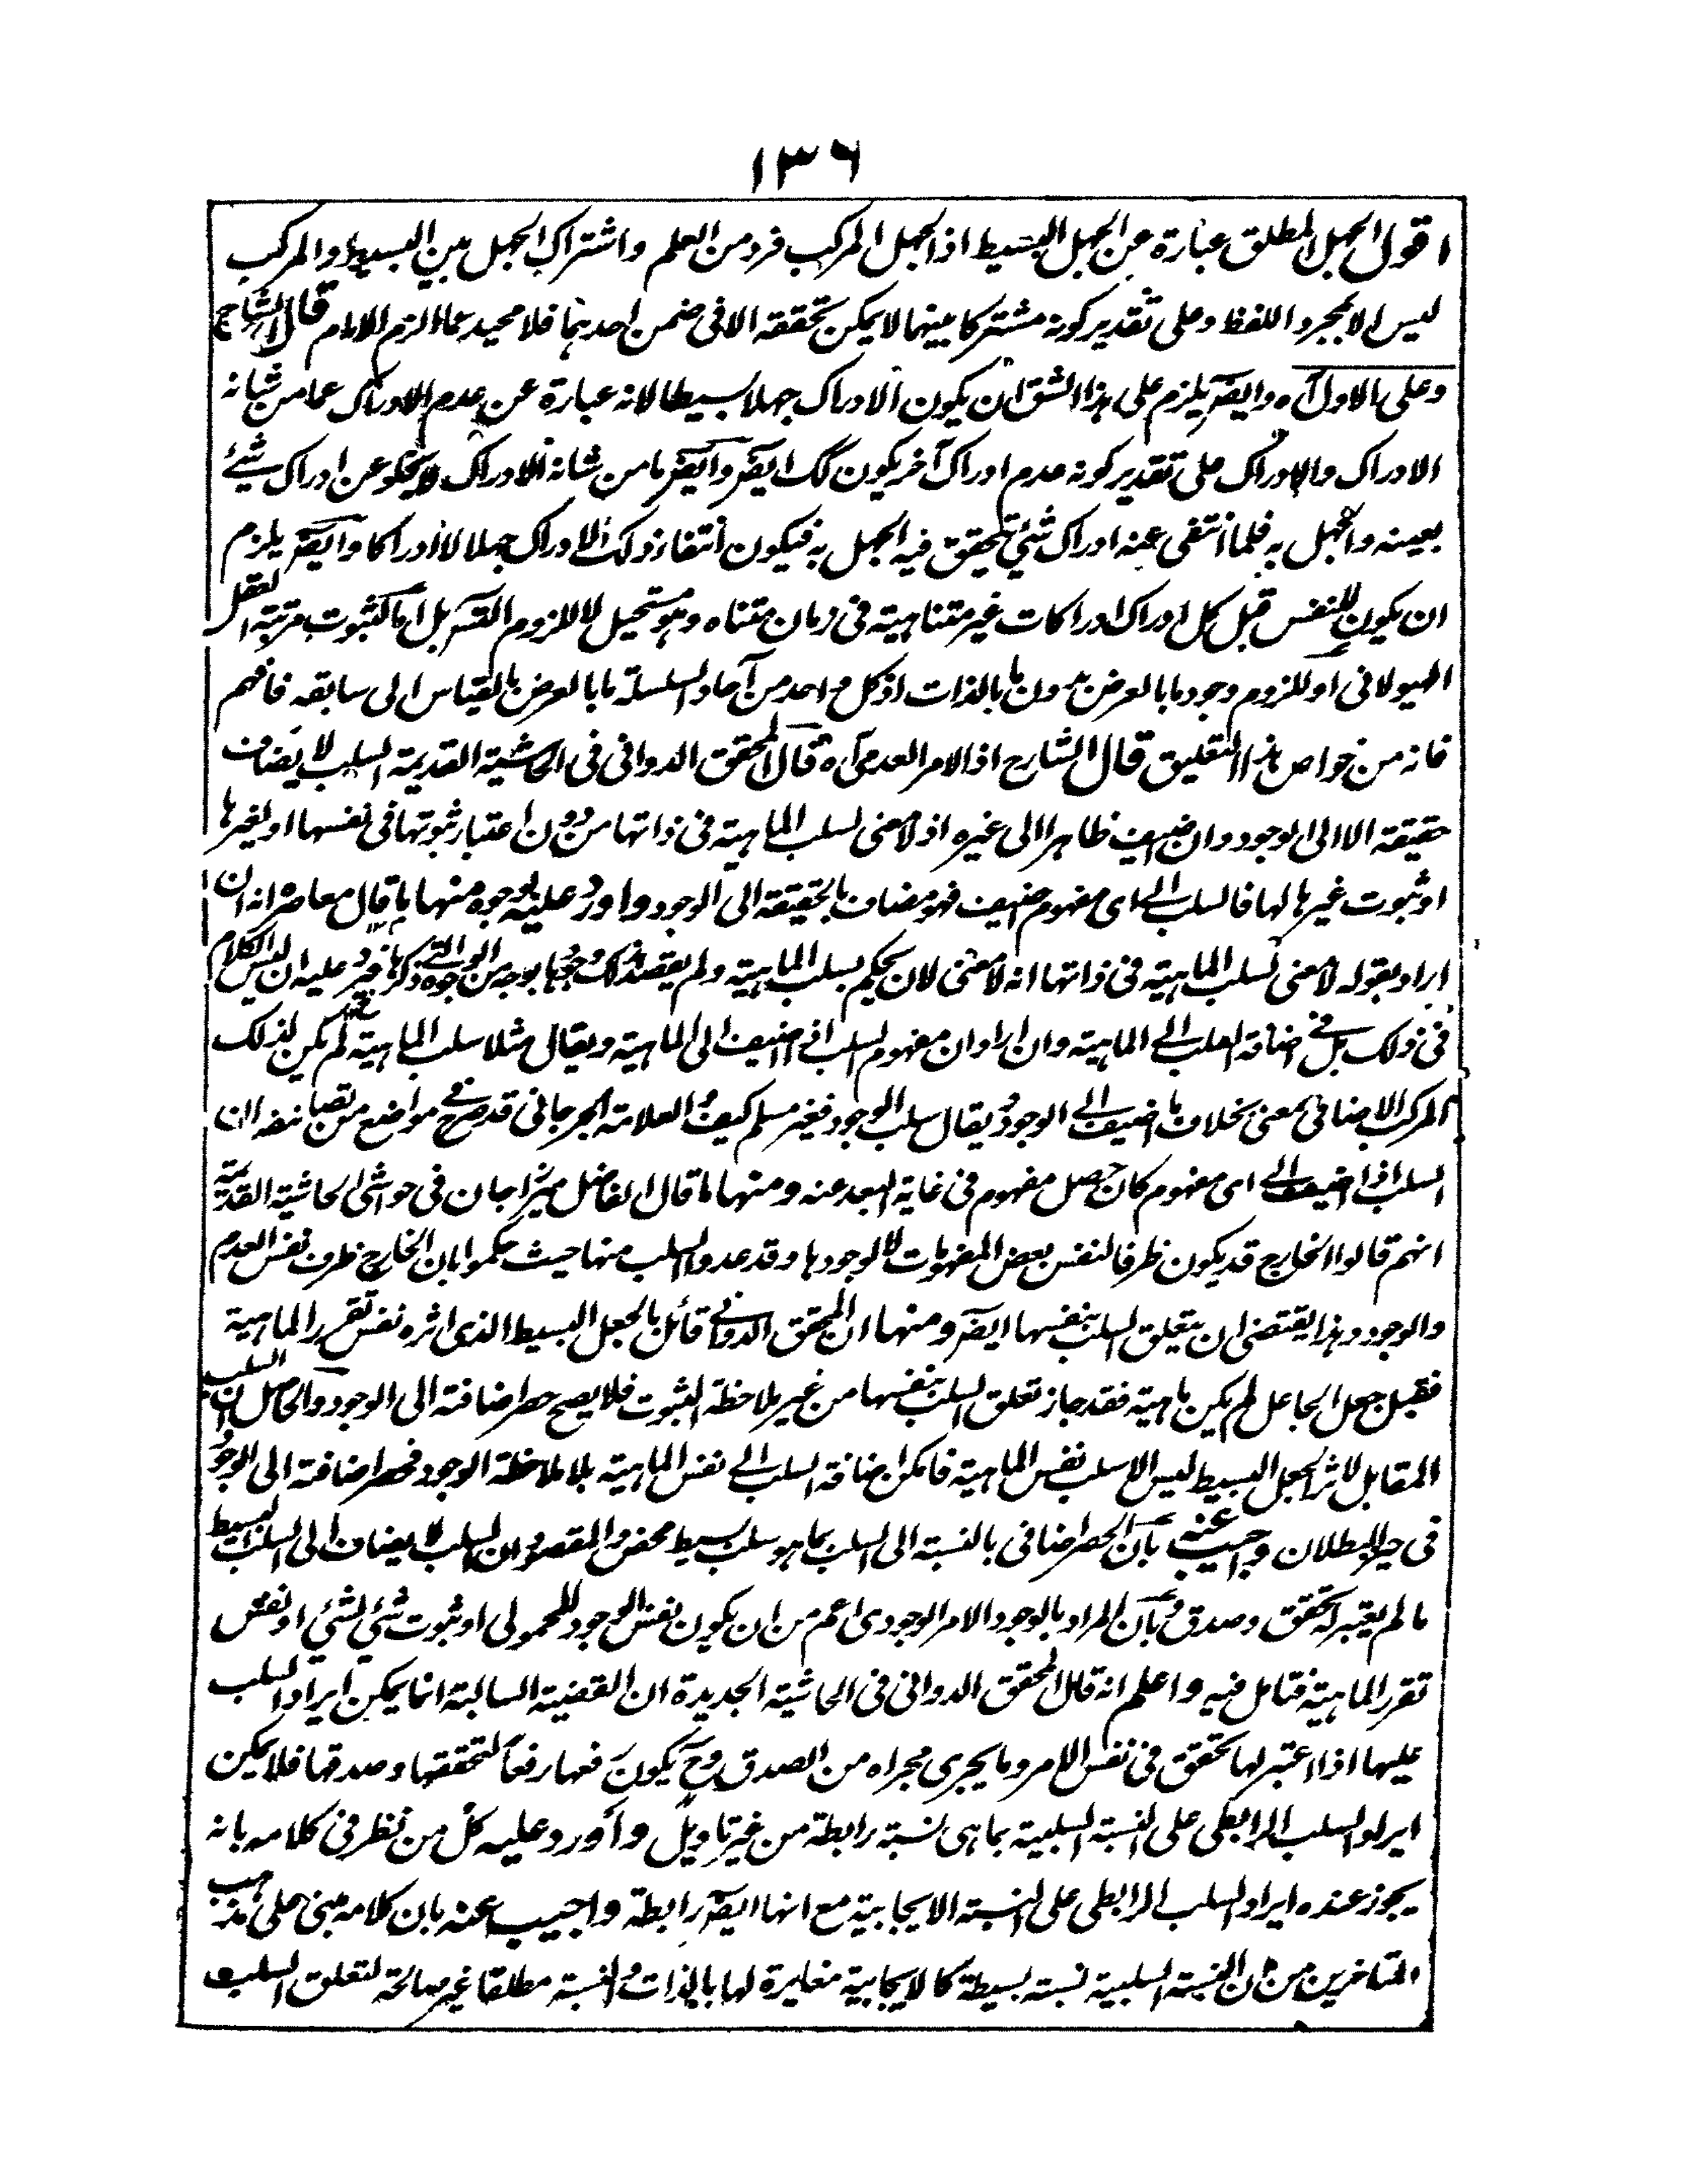 ١٣٦
اقول الجهل المطلق عبارة عن الجهل البسيط اذ الجهل المركب فرد من العلم واشتراك الجهل بين البسيط والمركب
ليس الا بمجرد اللفظ وعلى تقدير كونه مشتركا بينهما لا يمكن تحققه الا فى ضمن احدهما فلا محيد عما الزم الامام قال الشارح
وعلى الاول آه وايضً يلزم على هذا الشق ان يكون الادراك جهلا بسيطا لانه عبارة عن عدم الادراك عما من شانه
الادراك والادراك على تقدير كونه عدم ادراك آخر يكون كك ايضً وايضً ما من شانه الادراك لا يخلو عن ادراك شئ
بعينه والجهل به فلما انتفى عنه ادراك شئ تحقق فيه الجهل به فيكون انتفاء ذلك الادراك جهلا لا ادراكا وايضً يلزم
ان يكون للنفس قبل كل ادراك ادراكات غير متناهية فى زمان متناه وهو مستحيل لا للزوم التسَ بل اما لثبوت مرتبة العقل
الهيولانى او للزوم وجود ما بالعرض بدون ما بالذات اذ كل واحد من آحاد السلسلة ما بالعرض بالقياس الى سابقه فافهم
فانه من خواص هذا التعليق قال الشارح اذ الامر العدمى آه قال المحقق الدوانى فى الحاشية القديمة السلب لا يضاف
حقيقة الا الى الوجود وان اضيف ظاهرا الى غيره اذ لا معنى لسلب الماهية فى ذاتها من دون اعتبار ثبوتها فى نفسها او لغيرها
او ثبوت غيرها لها فالسلب الى اى مفهوم اضيف فهو مضاف بالحقيقة الى الوجود واورد عليه بوجوه منها ما قال معاصره انه ان
اراد بقوله لا معنى لسلب الماهية فى ذاتها انه لا معنى لان يحكم بسلب الماهية ولم يقصد ذلك وجها بوجه من الوجوه التى ذكرها فيرد عليه ان ليس الكلام
فى ذلك بل فى اضافة السلب الى الماهية وان اراد ان مفهوم السلب اذا اضيف الى الماهية ويقال مثلا سلب الماهية لم يكن لذلك
المركب الاضافى معنى بخلاف ما اضيف الى الوجود ويقال سلب الوجود فغير مسلم كيف والعلامة الجرجانى قد صرح فى مواضع من تصانيفه ان
السلب اذا اضيف الى اى مفهوم كان حصل مفهوم فى غاية البعد عنه ومنها ما قال الفاضل ميرزا جان فى حواشى الحاشية القديمة
انهم قالوا الخارج قد يكون ظرفا لنفس بعض المفهومات لا لوجودها وقد عدوا السلب منها حيث حكموا بان الخارج ظرف نفس العدم
والوجود وهذا يقتضى ان يتعلق السلب بنفسها ايضً ومنها ان المحقق الدوانى قائل بالجعل البسيط الذى اثره نفس تقرر الماهية
فقبل جعل الجاعل لم يكن ماهية فقد جاز تعلق السلب بنفسها من غير ملاحظة الثبوت فلا يصح حصر اضافته الى الوجود والحاصل ان السلب
المقابل لاثر الجعل البسيط ليس الا سلب نفس الماهية فامكن اضافة السلب الى نفس الماهية بلا ملاحظة الوجود فحصر اضافته الى الوجود
فى حيز البطلان واجيب عنه بان الحصر اضافى بالنسبة الى السلب بما هو سلب بسيط محض والمقصود ان السلب لا يضاف الى السلب البسيط
ما لم يعتبر له تحقق وصدق وبان المراد بالوجود الامر الوجودى اعم من ان يكون نفس الوجود المحمولى او ثبوت شئ لشئ او نفس
تقرر الماهية فتامل فيه واعلم انه قال المحقق الدوانى فى الحاشية الجديدة ان القضية السالبة انما يمكن ايراد السلب
عليها اذا اعتبر لها تحقق فى نفس الامر وما يجرى مجراه من الصدق وح يكون رفعها رفعا لتحققها وصدقها فلا يمكن
ايراد السلب الرابطى على النسبة السلبية بما هى نسبة رابطة من غير تاويل واورد عليه كل من نظر فى كلامه بانه
يجوز عنده ايراد السلب الرابطى على النسبة الايجابية مع انها ايضً رابطة واجيب عنه بان كلامه مبنى على مذهب
المتاخرين من ان النسبة السلبية نسبة بسيطة كالايجابية مغايرة لها بالذات والنسبة مطلقا غير صالحة لتعلق السلب